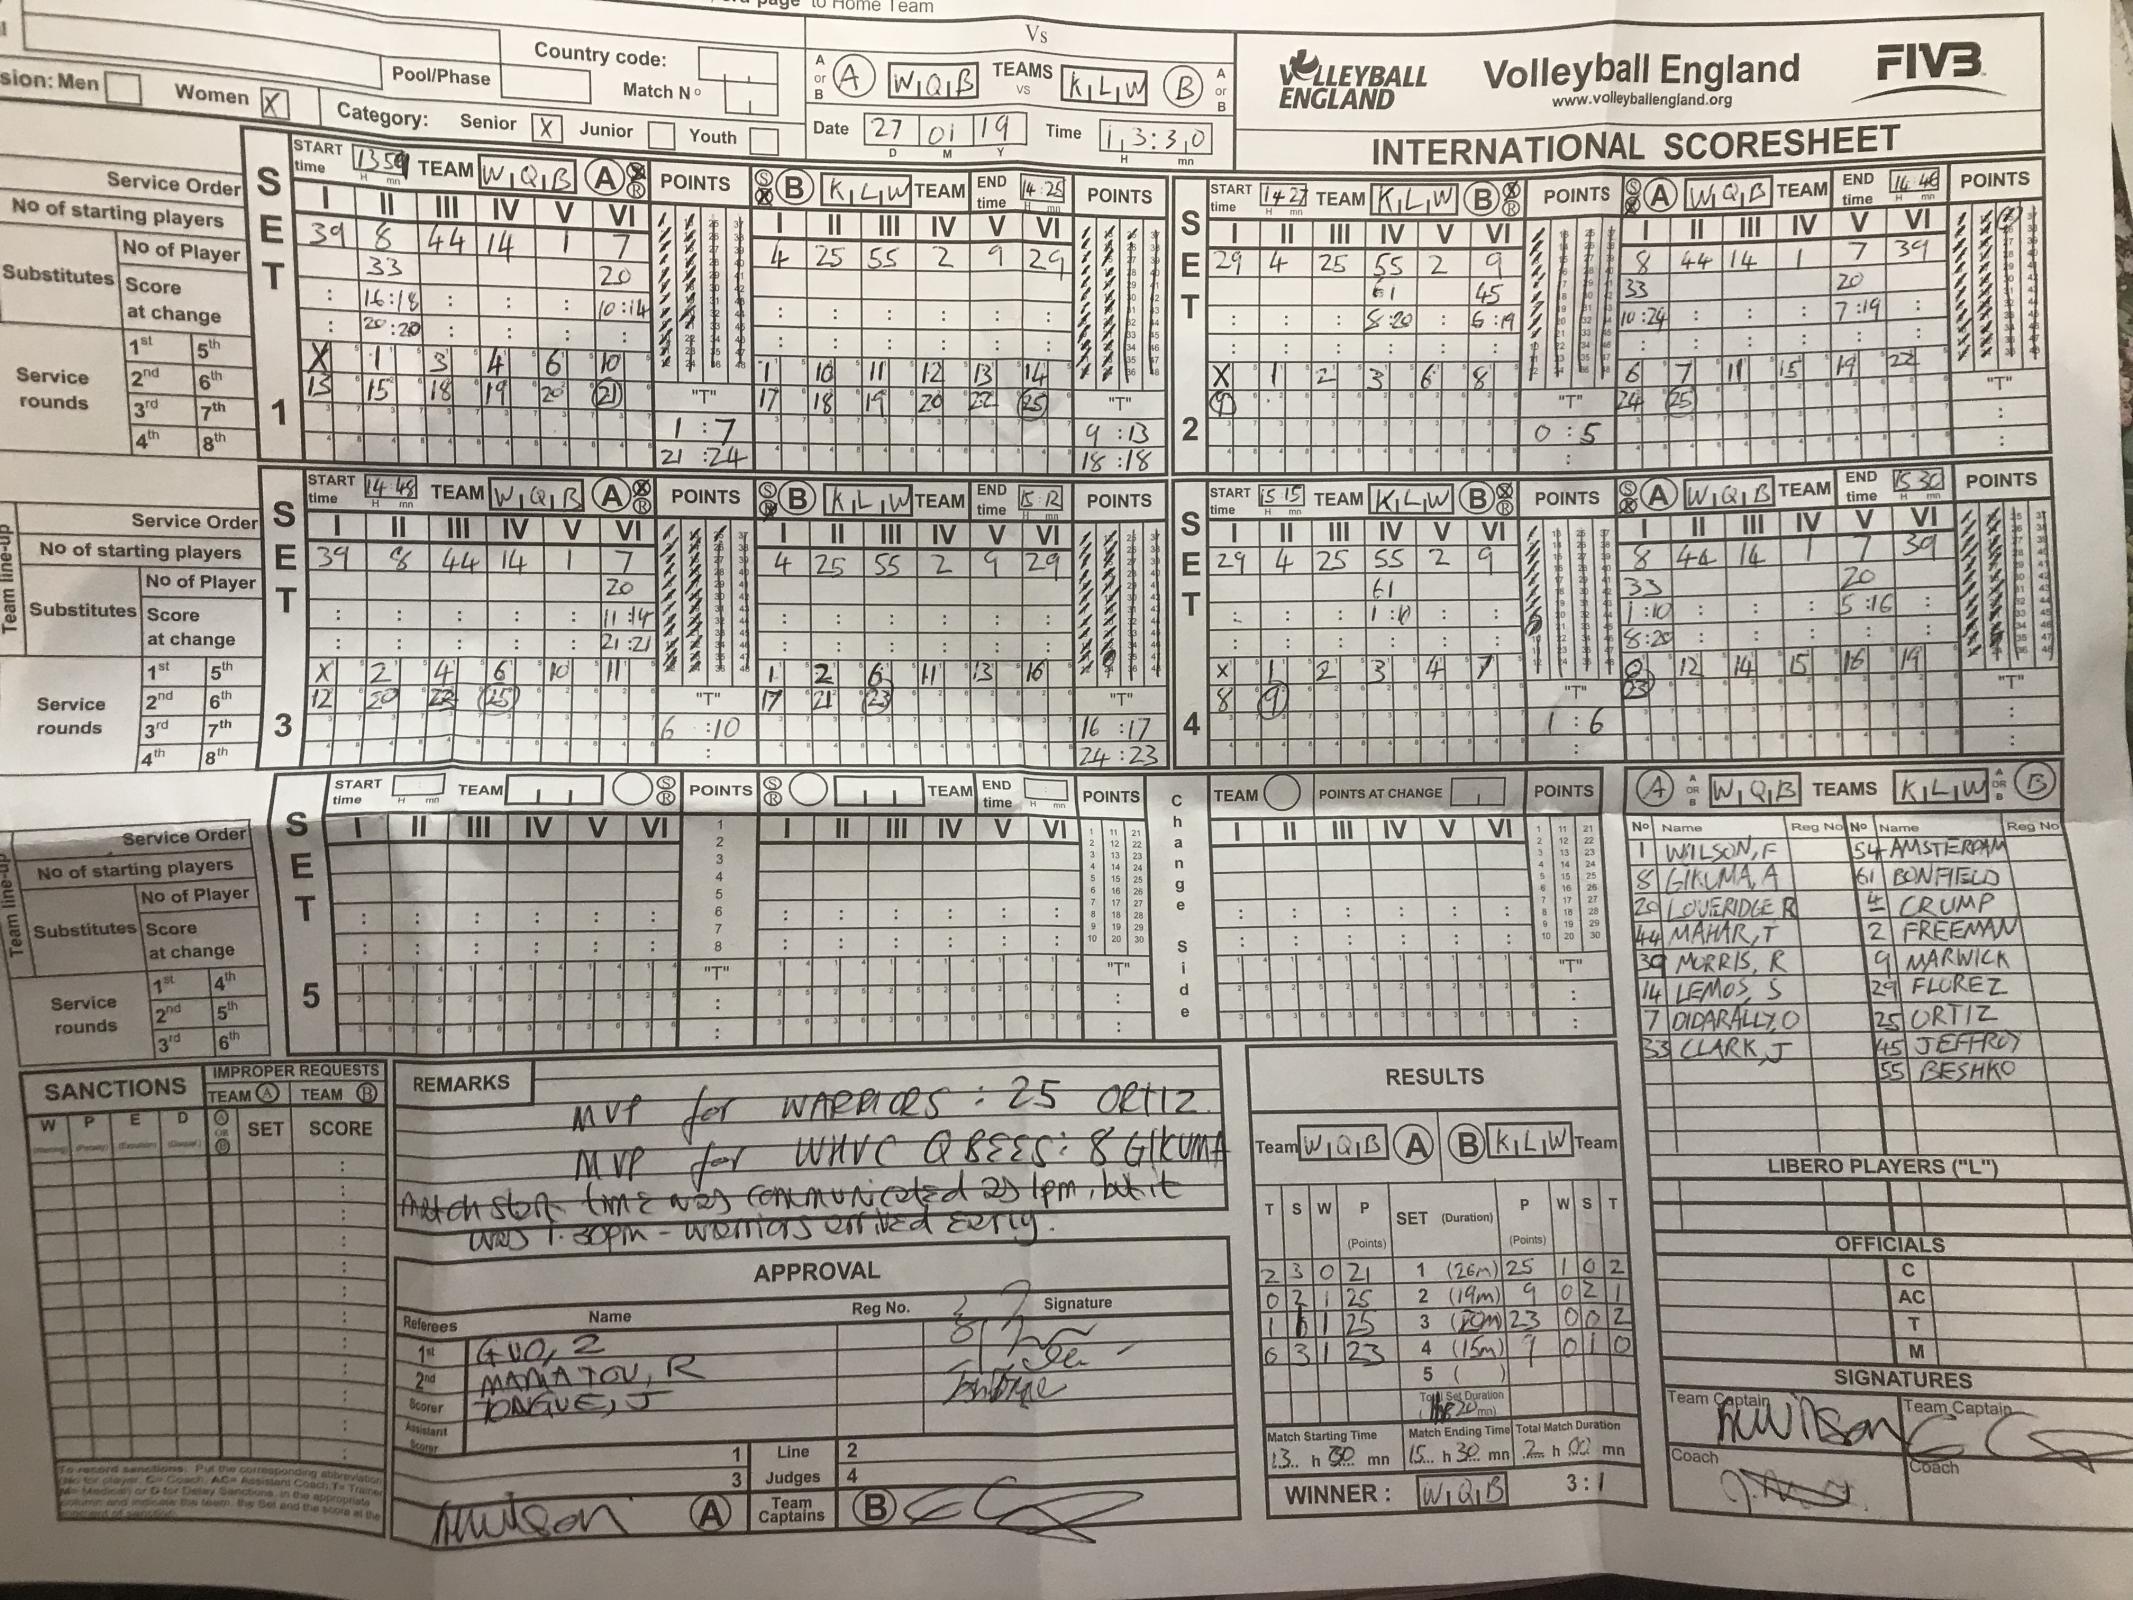 page to Home Team
Country code:
Vs
sion: Men Women X
Pool/Phase
Match Nº
Category: Senior X Junior Youth
A or B A W Q B TEAMS vs K L W B A or B
Date 27 01 19 Time 13:30
D M Y H mn
VOLLEYBALL ENGLAND
Volleyball England
www.volleyballengland.org
FIVB
INTERNATIONAL SCORESHEET
Service Order
No of starting players
Substitutes
No of Player
Score at change
Service rounds
1st 5th
2nd 6th
3rd 7th
4th 8th
SET 1
START time 13 59 TEAM W Q B A S R POINTS
I II III IV V VI
39 8 44 14 1 7
33 20
16:18 10:14
20:20
X 1 3 4 6 10
13 15 18 19 20 21
"T"
1:7
21:24
S R B K L W TEAM END time 14:25 POINTS
I II III IV V VI
4 25 55 2 9 29
1 10 11 12 13 14
17 18 19 20 22 25
"T"
9:13
18:18
SET 2
START time 14 27 TEAM K L W B S R POINTS
I II III IV V VI
29 4 25 55 2 9
61 45
8:20 6:19
X 1 2 3 6 8
9
"T"
0:5
S R A W Q B TEAM END time 14:46 POINTS
I II III IV V VI
8 44 14 1 7 39
33 20
10:24 7:19
6 7 11 15 19 22
24 25
"T"
Team line-up
Service Order
No of starting players
Substitutes
No of Player
Score at change
Service rounds
1st 5th
2nd 6th
3rd 7th
4th 8th
SET 3
START time 14:48 TEAM W Q B A S R POINTS
I II III IV V VI
39 8 44 14 1 7
20
11:14
21:21
X 2 4 6 10 11
12 20 22 25
"T"
6:10
S R B K L W TEAM END time 15:12 POINTS
I II III IV V VI
4 25 55 2 9 29
1 2 6 11 13 16
17 21 23
"T"
16:17
24:23
SET 4
START time 15:15 TEAM K L W B S R POINTS
I II III IV V VI
29 4 25 55 2 9
61
1:10
X 1 2 3 4 7
8 9
"T"
1:6
S R A W Q B TEAM END time 15 30 POINTS
I II III IV V VI
8 44 14 1 7 39
33 20
1:10 5:16
8:20
12 14 15 16 19
23
"T"
Team line-up
Service Order
No of starting players
Substitutes
No of Player
Score at change
Service rounds
1st 4th
2nd 5th
3rd 6th
SET 5
START time TEAM S R POINTS
I II III IV V VI
1
2
3
4
5
6
7
8
"T"
S R TEAM END time POINTS
I II III IV V VI
"T"
Change Side
TEAM POINTS AT CHANGE POINTS
I II III IV V VI
"T"
A A OR B W Q B TEAMS K L W A OR B B
Nº Name Reg No Nº Name Reg No
1 WILSON, F 54 AMSTERDAM
8 GIKUMA, A 61 BONFIELD
20 LOVERIDGE R 4 CRUMP
44 MAHAR, T 2 FREEMAN
39 MORRIS, R 9 MARWICK
14 LEMOS, S 29 FLOREZ
7 DIDARALLY, O 25 ORTIZ
33 CLARK, J 45 JEFFROY
55 BESHKO
LIBERO PLAYERS ("L")
OFFICIALS
C
AC
T
M
SIGNATURES
Team Captain Team Captain
Coach Coach
SANCTIONS
IMPROPER REQUESTS
TEAM A TEAM B
W P E D A OR B SET SCORE
REMARKS
MVP for WARRIORS: 25 ORTIZ
MVP for WHVC QBEES: 8 GIKUMA
Match start time was communicated as 1pm, but it
was 1.30pm - warriors arrived early.
APPROVAL
Referees Name Reg No. Signature
1st GUO, Z
2nd MAMATOV, R
Scorer TONGUE, J
Assistant Scorer
1 Line 2
3 Judges 4
A Team Captains B
RESULTS
Team W Q B A B K L W Team
T S W P (Points) SET (Duration) P (Points) W S T
2 3 0 21 1 (26m) 25 1 0 2
0 2 1 25 2 (19m) 9 0 2 1
1 1 1 25 3 23 0 0 2
3 1 23 4 (15m) 9 0 1 0
5 ( )
Total Set Duration
Match Starting Time Match Ending Time Total Match Duration
13 h 30 mn 15 h 30 mn 2 h 00 mn
WINNER: W Q B 3:1